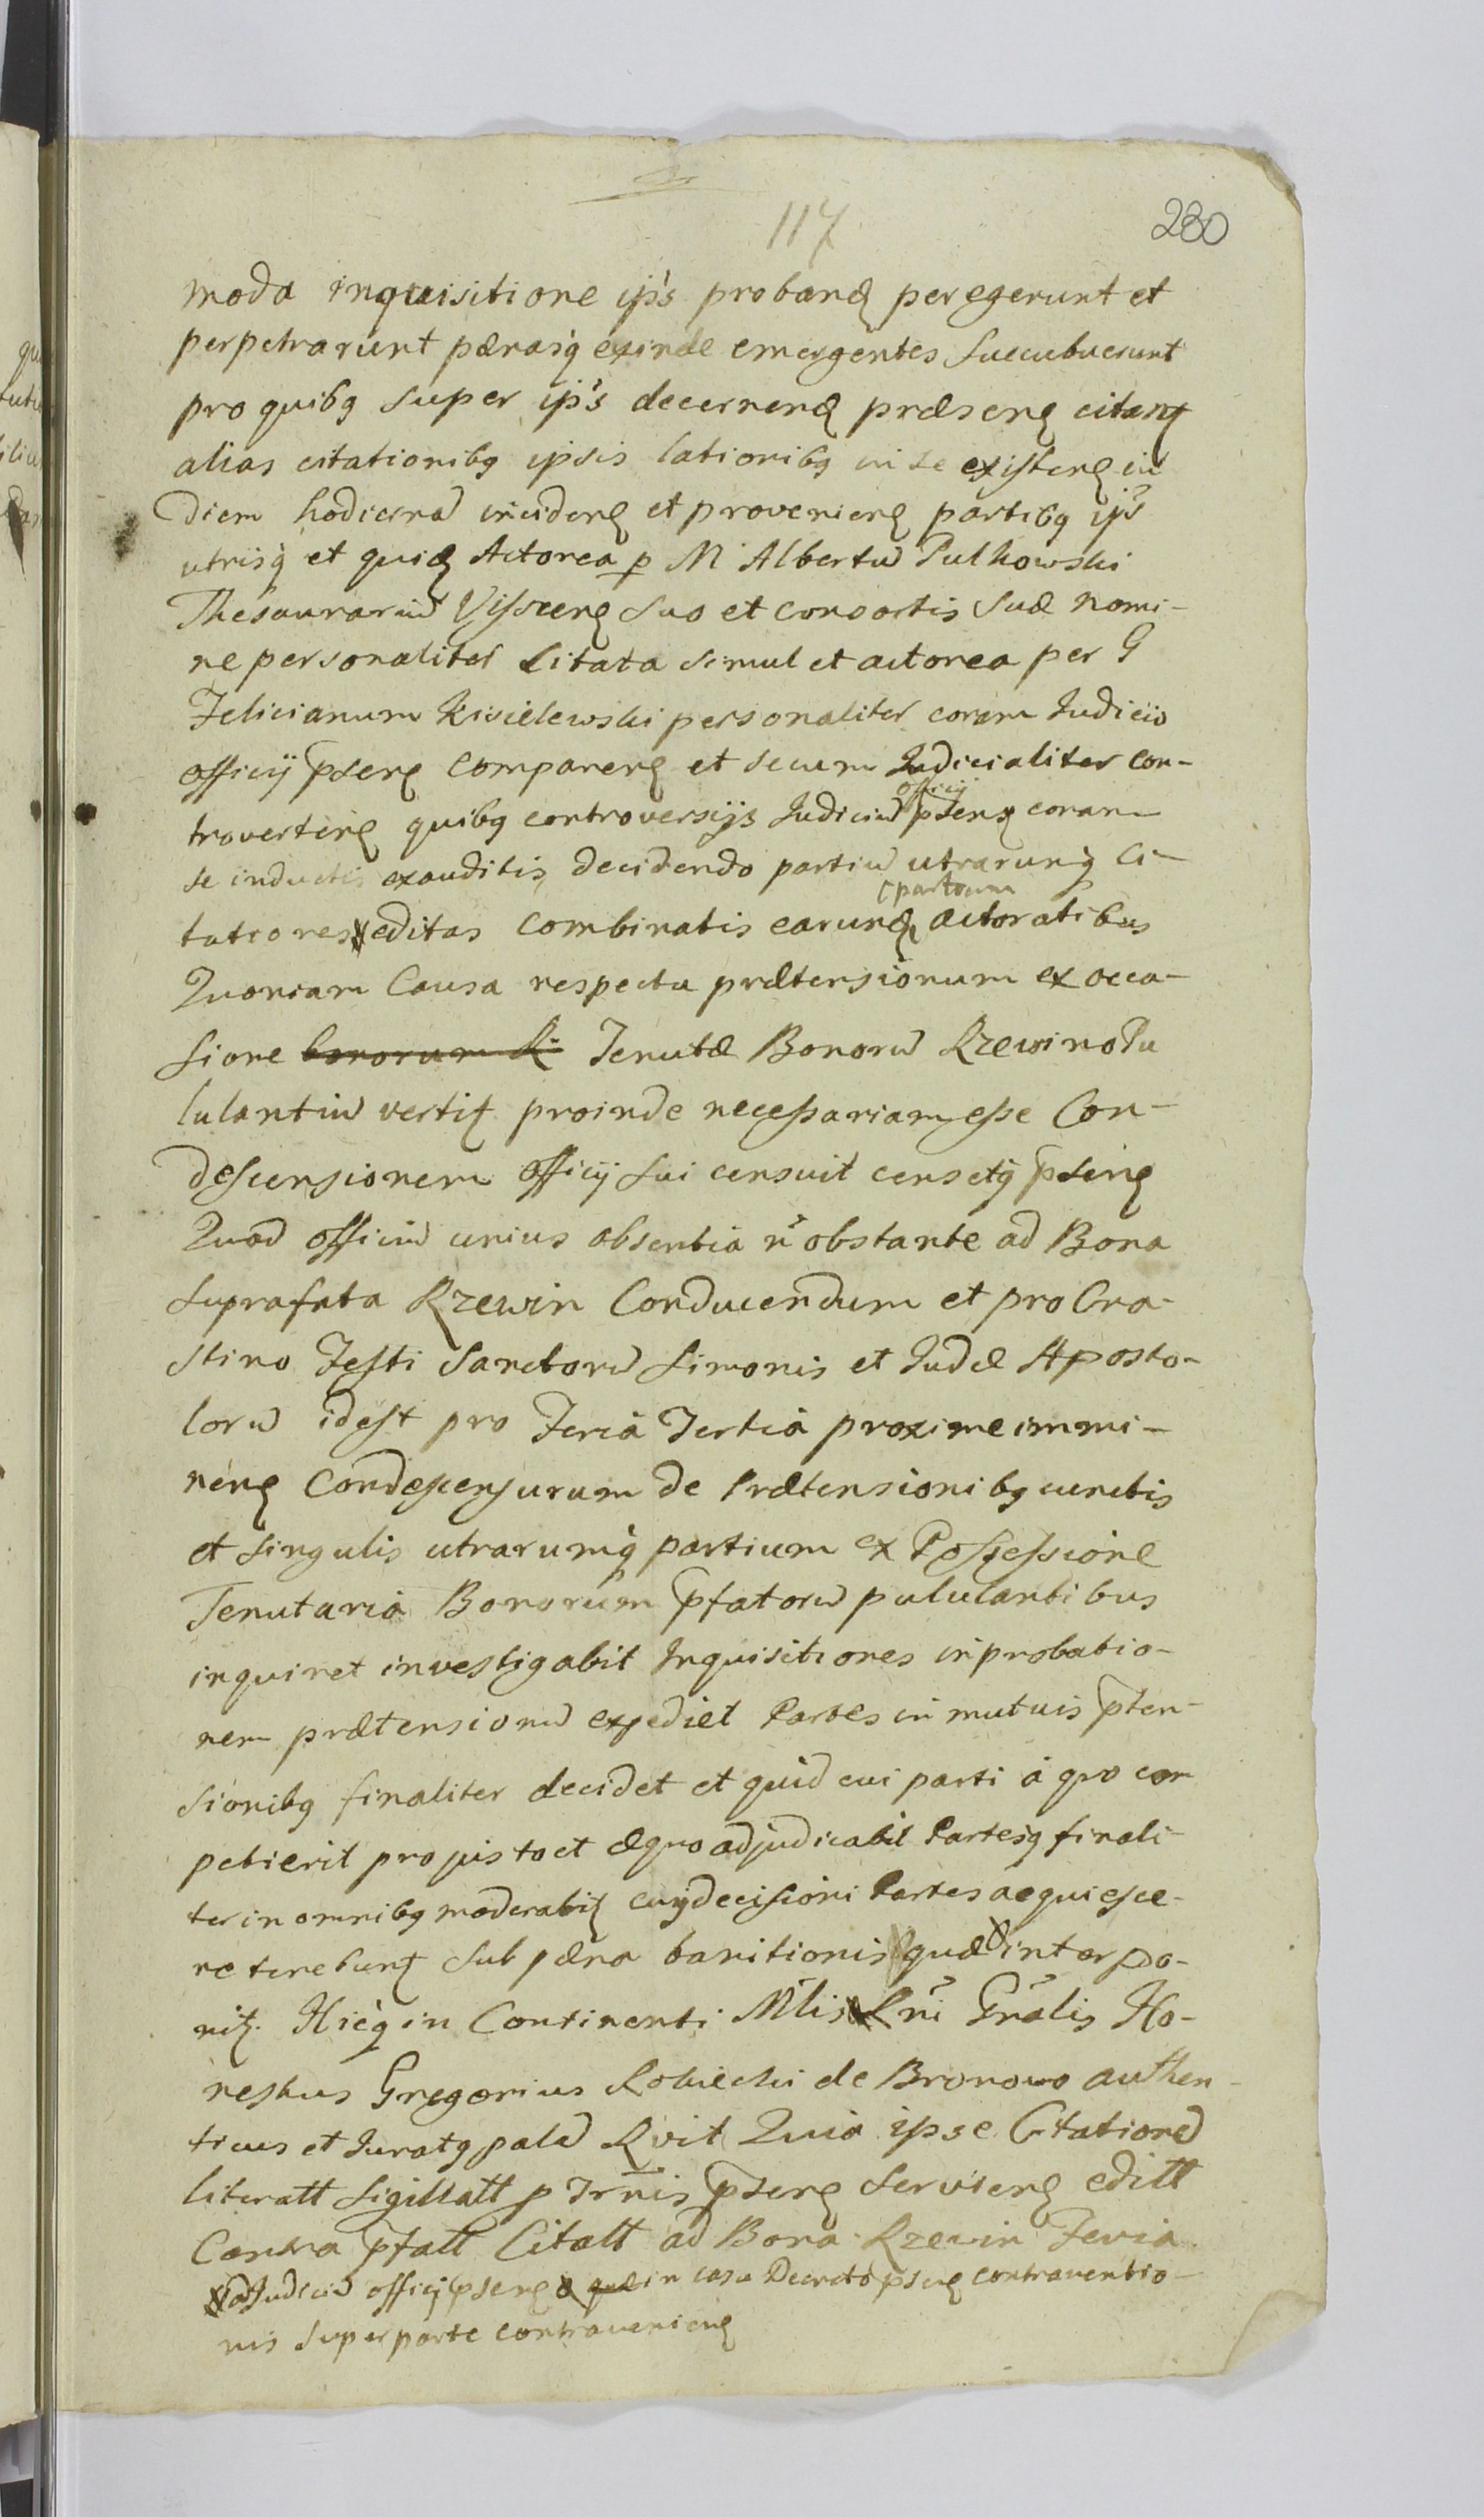 117
280
moda inquisitione ip̃s proband̨ peregerunt et
perpetrarunt pænasq̨ exinde emergentes succubuerunt
pro quibq super ip̃s decernend̨ præsenȩ citantʒ
alias citationibq ipsis lationibq in se existenȩ in
diem hodierna᷑ incidenȩ et provenienȩ partibq ip̃s
utrisq̨ et quid̨ Actorea p M Albertu᷑ Pulkowski
Thesaurariu᷑ Visscenȩ suo et consortis suæ nomi-
ne personaliter Citata simul et actorea per G
Felicianum Kisielewski personaliter coram Iudicio
officij p̃senȩ comparenȩ et secum Iudicialiter con-
officij
trovertenȩ quibq controversijs Iudiciu᷑ p̃senȩ coram
se inductis exauditis, decidendo partiu᷑ utrarumq̨ Ci-
partium
tationes editas combinatis earund̨ actoratibus
Quoniam Causa respectu prætensionum ex occa-
sione bonorum R- Tenutæ Bonoru᷑ Rzewin oPu
lulantiu᷑ vertitʒ proinde necessariam esse Con-
descensionem officij sui censuit censetq̨ p̃senȩ
Quod officiu᷑ unius absentiâ ñ obstante ad Bona
suprafata Rzewin Conducendum et pro Cra-
stino Festi Sanctoru᷑ Simonis et Iudæ Aposto-
loru᷑ idest pro Feriâ Tertiâ proxime immi-
nenȩ Condescensurum de Prætensionibq cunctis
et singulis utrarumq̨ partium ex Possessione
Tenutariâ Bonorum p̃fatoru᷑ pululantibus
inquiret investigabit Inquisitiones in probatio-
nem prætensionu᷑ expediet Partes in mutuis p̃ten-
sionibq finaliter decidet et quid cui parti à quo com
petierit pro justo et æquo adjudicabit Partesq̨ finali-
ter in omnibq moderabitʒ cuj decisioni Partes acquiesce-
re tenebuntʒ sub pæna banitionis quæ interpo-
nitʒ. Hicq̨ in Continenti Mlis Rñi Gñalis Ho-
nestus Gregorius Robiecki de Bronowo authen-
ticus et Iuratq pala᷑ Rvit Quia ipse Citatione᷑
literatt sigillatt p Trñis p̃senȩ servienȩ editt
Contra p̃fatt Citatt ad Bona Rzewin Feria
ad Iudiciu᷑ officij p̃senȩ quæ in casu Decreto p̃senȩ contraventio-
nis super parte contravenienȩ